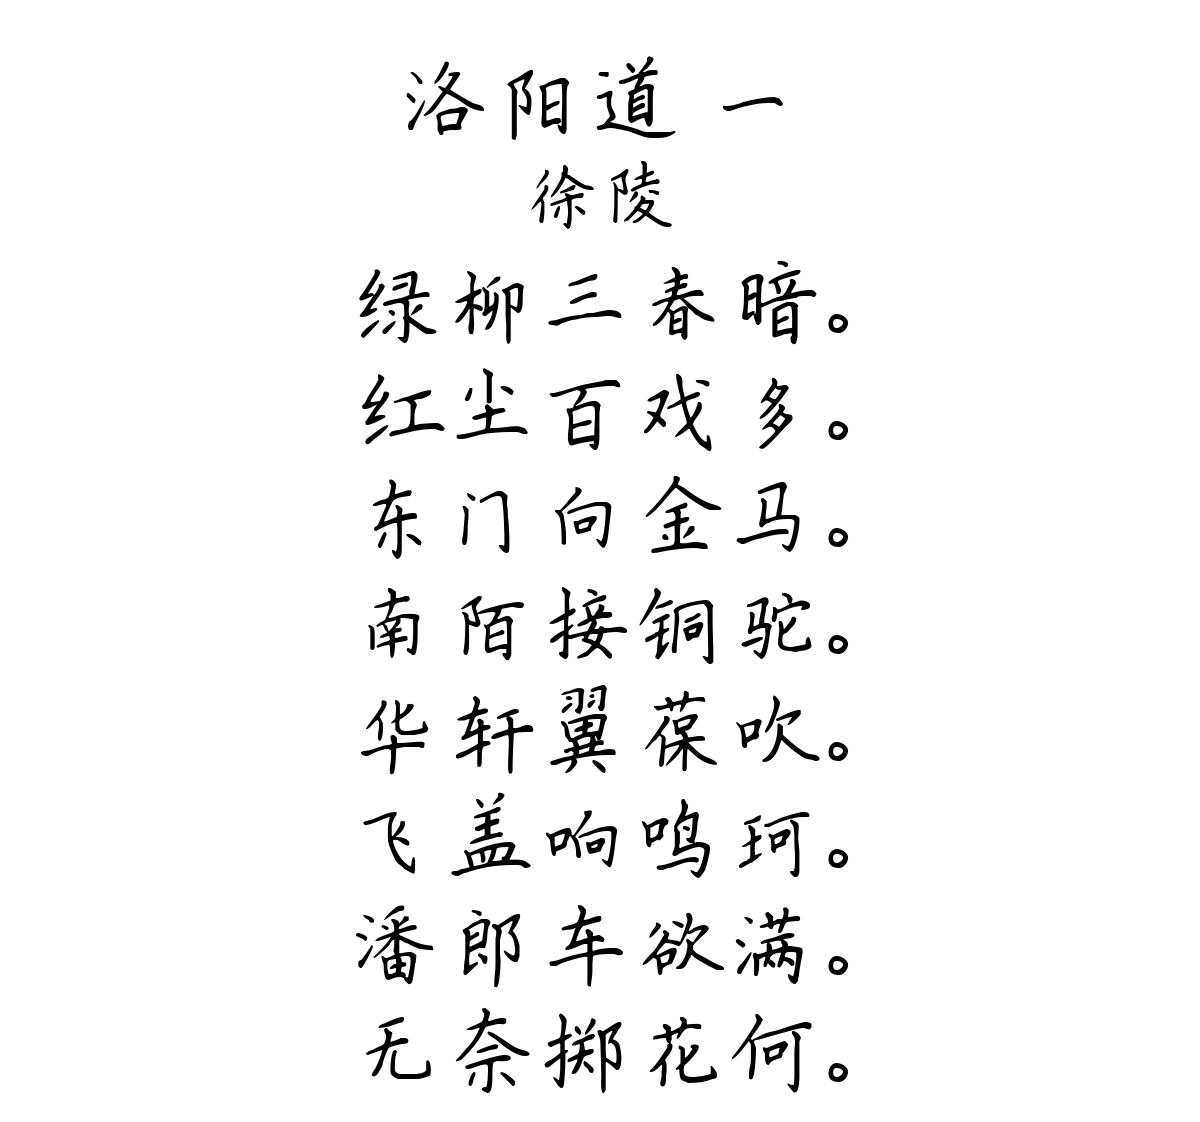 洛阳道 一
徐陵
绿柳三春暗。
红尘百戏多。
东门向金马。
南陌接铜驼。
华轩翼葆吹。
飞盖响鸣珂。
潘郎车欲满。
无奈掷花何。